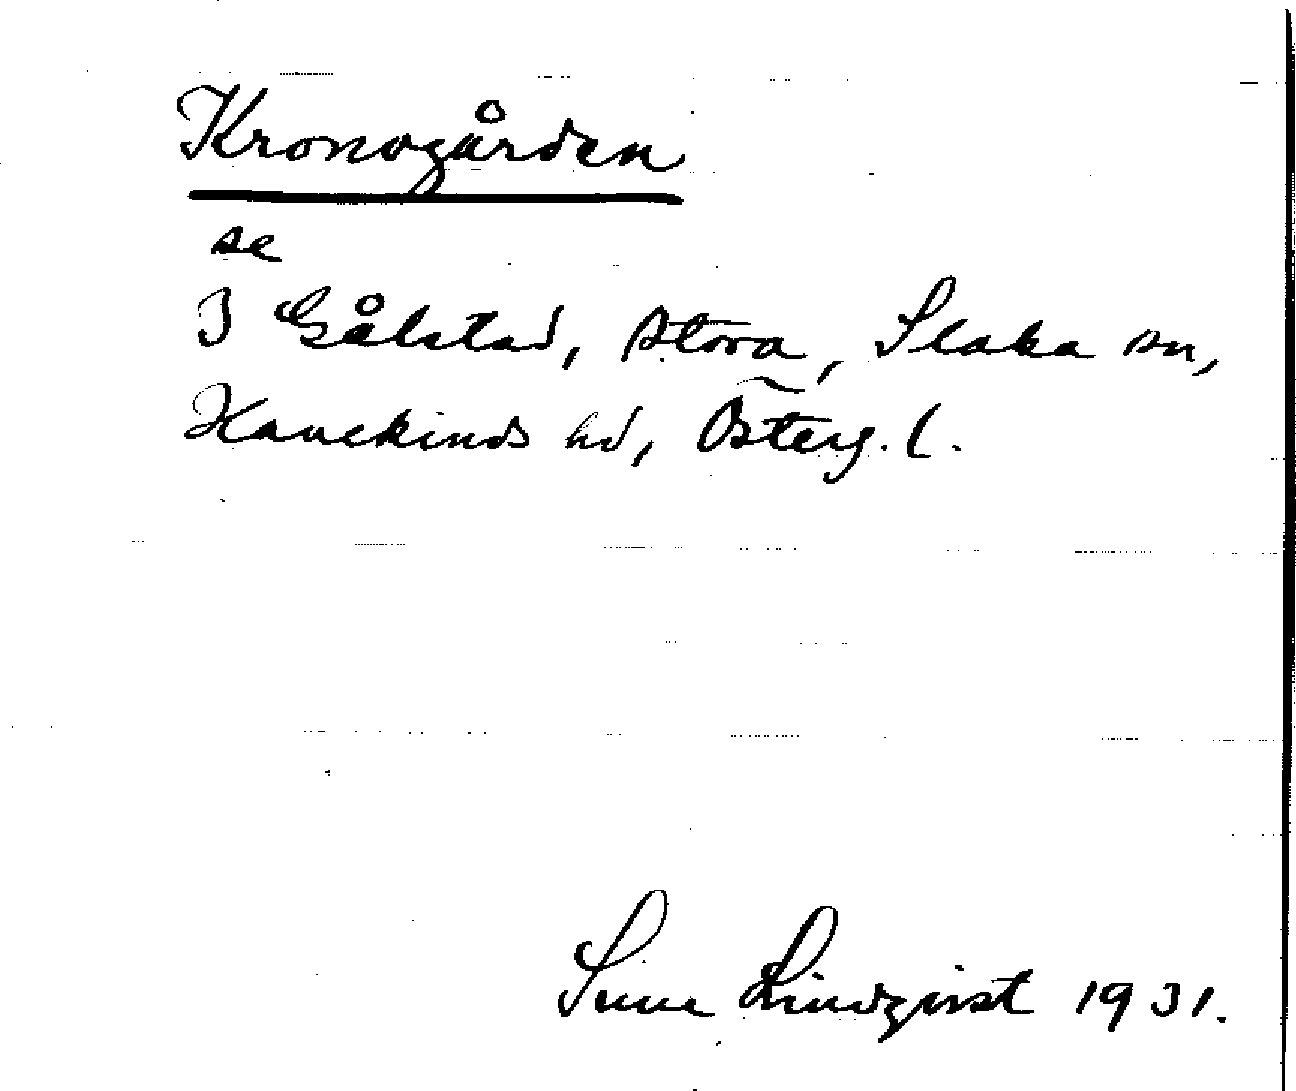 Kronogården
se
I Gålstad, stora, Slaka sn,
Hanekinds hd, Österg. l.
Sune Lindqvist 1931.